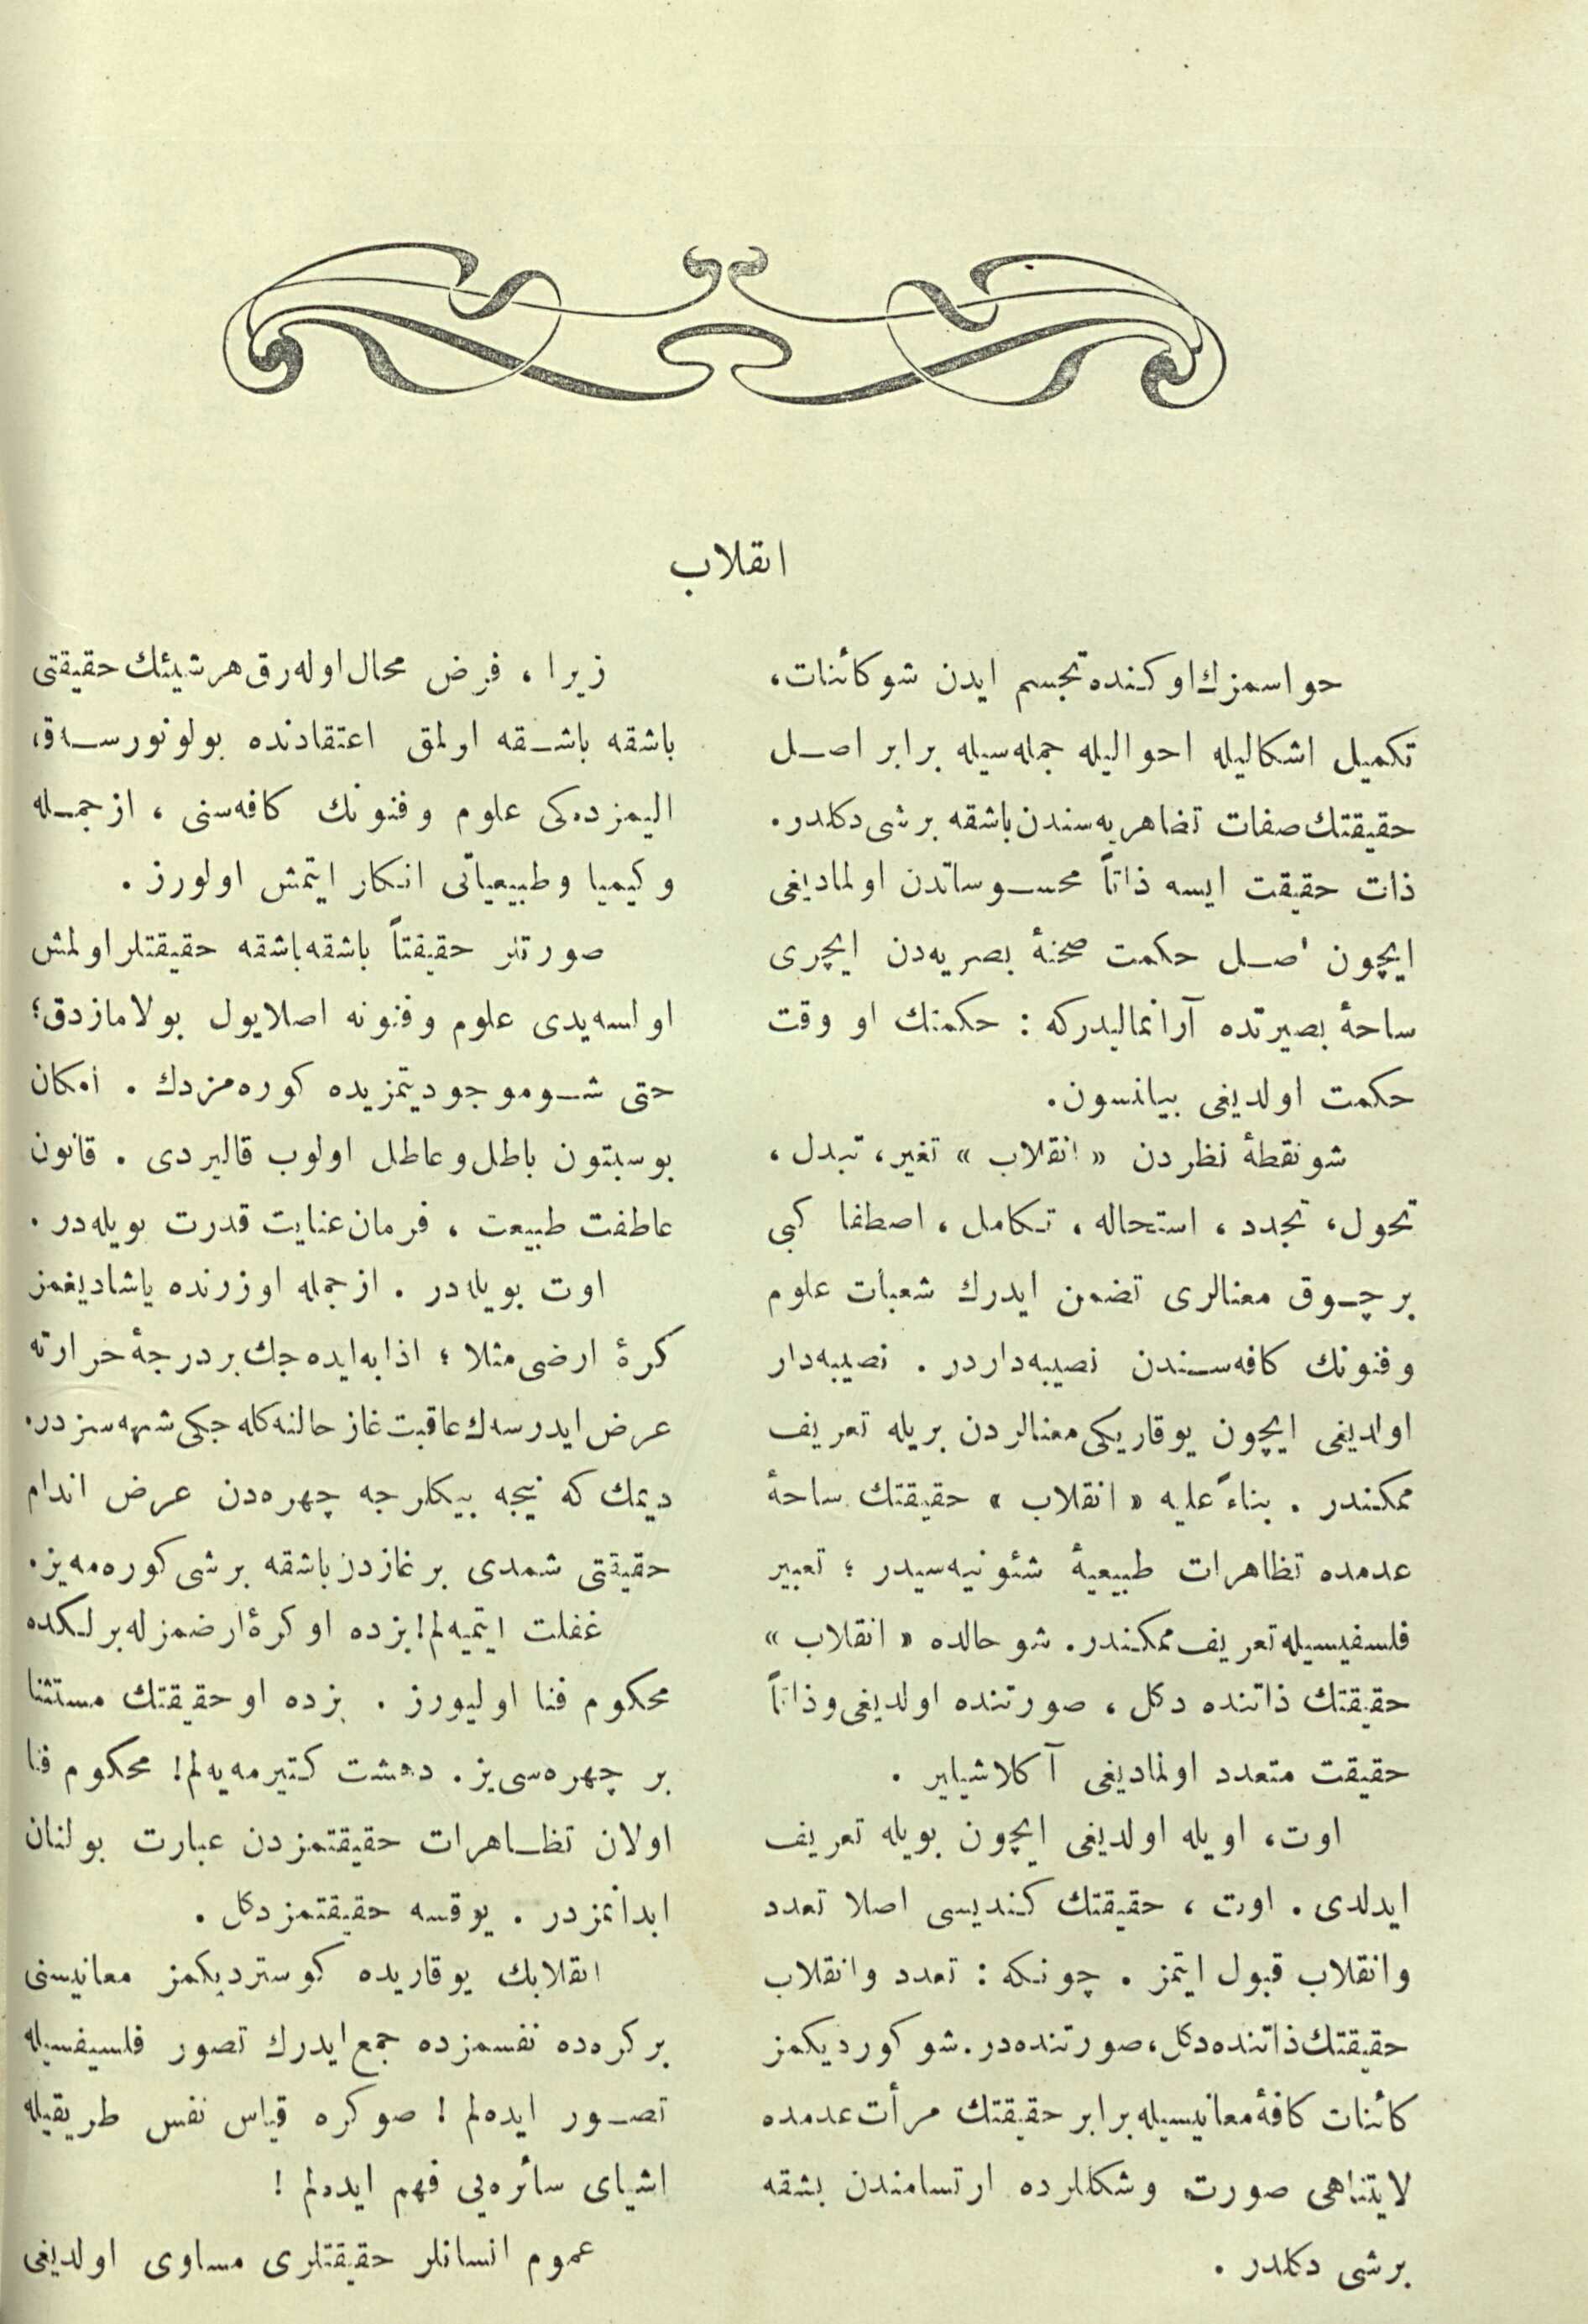 انقلاب
حواسمزك اوكنده تجسم ايدن شوكائنات،
تكميل اشكاليله احواليله جمله‌سيله برابر اصل
حقيقتك صفات تضاهريه‌سندن باشقه برشى دكلدر.
ذات حقيقت ايسه ذاتاً محسوساتدن اولماديغى
ايچون اصل حكمت صحنهٔ بصريه‌دن ايچرى
ساحهٔ بصيرتده آرانماليدركه : حكمتك او وقت
حكمت اولديغى بيانسون.
شونقطهٔ نظردن « انقلاب » تغير، تبدل ،
تحول، تجدد ، استحاله ، تكامل ، اصطفا كبى
برچوق معنالرى تضمن ايدرك شعبات علوم
وفنونك كافه‌سندن نصيبه‌داردر . نصيبه‌دار
اولديغى ايچون يوقاريكى معنالردن بريله تعريف
ممكندر . بناءً عليه « انقلاب » حقيقتك ساحهٔ
عدمده تظاهرات طبيعيهٔ شئونيه‌سيدر ؛ تعبير
فلسفيسيله تعريف ممكندر. شو حالده « انقلاب »
حقيقتك ذاتنده دكل ، صورتنده اولديغى وذاتاً
حقيقت متعدد اولماديغى آكلاشيلير .
اوت، اويله اولديغى ايچون بويله تعريف
ايدلدى . اوت ، حقيقتك كنديسى اصلا تعدد
وانقلاب قبول ايتمز . چونكه : تعدد وانقلاب
حقيقتك ذاتنده دكل، صورتنده‌در. شو كورديكمز
كائنات كافهٔ معانيسيله برابر حقيقتك مرأت عدمده
لايتناهى صورت وشكللرده ارتسامندن بشقه
برشى دكلدر .
زيرا ، فرض محال اوله‌رق هر شيئك حقيقتى
باشقه باشقه اولمق اعتقادنده بولونورسه‌ق،
اليمزده‌كى علوم وفنونك كافه‌سنى ، از جمله
وكيميا وطبيعياتى انكار ايتمش اولورز .
صورتلر حقيقتاً باشقه باشقه حقيقتلر اولمش
اولسه‌يدى علوم وفنونه اصلا يول بولامازدق؛
حتى شو موجوديتمزيده كوره‌مزدك . امكان
بوسبتون باطل وعاطل اولوب قاليردى . قانون
عاطفت طبيعت ، فرمان عنايت قدرت بويله‌در .
اوت بويله‌در . از جمله اوزرنده ياشاديغمز
كرهٔ ارضى مثلا ؛ اذابه ايده‌جك بر درجهٔ حرارته
عرض ايدرسه‌ك عاقبت غاز حالنه كله‌جكى شبهه‌سزدر.
ديمك كه نيجه بيكلرجه چهره‌دن عرض اندام
حقيقتى شمدى بر غازدن باشقه برشى كوره‌مه‌يز.
غفلت ايتميه‌لم! بزده او كرهٔ ارضمزله برلكده
محكوم فنا اوليورز . بزده او حقيقتك مستثنا
بر چهره‌سى‌يز. دهشت كتيرمه‌يه‌لم! محكوم فنا
اولان تظاهرات حقيقتمزدن عبارت بولنان
ابدانمزدر . يوقسه حقيقتمز دكل .
انقلابك يوقاريده كوسترديكمز معانيسنى
بر كره‌ده نفسمزده جمع ايدرك تصور فلسفيسيله
تصور ايده‌لم ! صوكره قياس نفس طريقيله
اشياى سائره‌يى فهم ايده‌لم !
عموم انسانلر حقيقتلرى مساوى اولديغى